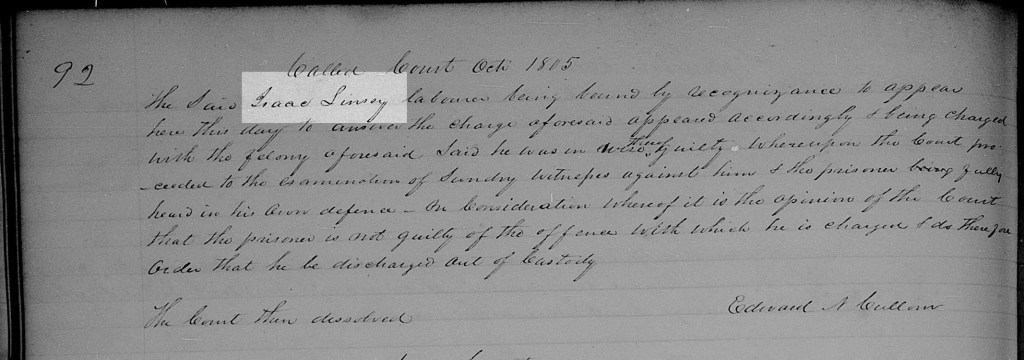 92
Called Court Octr 1805
The Said Isaac Linsey labourer being bound by recognizance to appear
here this day to answer the charge aforesaid appeared accordingly & being charged
with the felony aforesaid Said he was in no thing Guilty Whereupon the Court pro-
-ceeded to the examination of Sundry Witnesses against him & the prisoner being fully
heard in his own defence - On Consideration whereof it is the opinion of the Court
that the prisoner is not guilty of the offence with which he is charged & do therefore
Order that he be discharged out of Custody
The Court then dissolved
Edward N Cullom